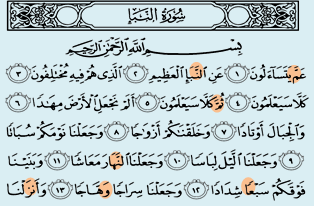 سُورَةُ النَّبَإِ
بِسْمِ اللَّهِ الرَّحْمَٰنِ الرَّحِيمِ
عَمَّ يَتَسَاءَلُونَ ١ عَنِ النَّبَإِ الْعَظِيمِ ٢ الَّذِي هُمْ فِيهِ مُخْتَلِفُونَ ٣
كَلَّا سَيَعْلَمُونَ ٤ ثُمَّ كَلَّا سَيَعْلَمُونَ ٥ أَلَمْ نَجْعَلِ الْأَرْضَ مِهَادًا ٦
وَالْجِبَالَ أَوْتَادًا ٧ وَخَلَقْنَاكُمْ أَزْوَاجًا ٨ وَجَعَلْنَا نَوْمَكُمْ سُبَاتًا
٩ وَجَعَلْنَا اللَّيْلَ لِبَاسًا ١٠ وَجَعَلْنَا النَّهَارَ مَعَاشًا ١١ وَبَنَيْنَا
فَوْقَكُمْ سَبْعًا شِدَادًا ١٢ وَجَعَلْنَا سِرَاجًا وَهَّاجًا ١٣ وَأَنزَلْنَا